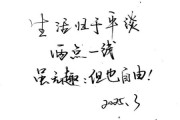 生活归于平淡
两点一线
虽无趣;但也自由!
2025.3